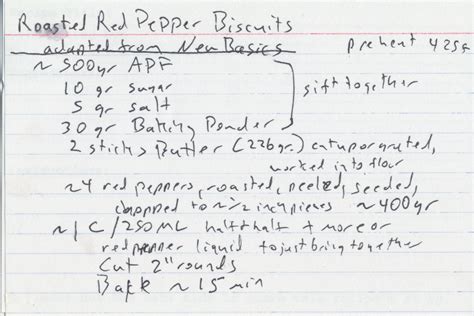 Roasted Red Pepper Biscuits
adapted from New Basics preheat 425F
~ 500gr APF
10 gr sugar sift together
5 gr salt
30 gr Baking Powder
2 sticks Butter (226gr.) cut up or grated,
worked into flour
~4 red peppers, roasted, peeled, seeded,
chopped to ~1/2 inch pieces ~400gr
~1 C/250ML half + half + more or
red pepper liquid to just bring together
Cut 2" rounds
Bake ~15 min